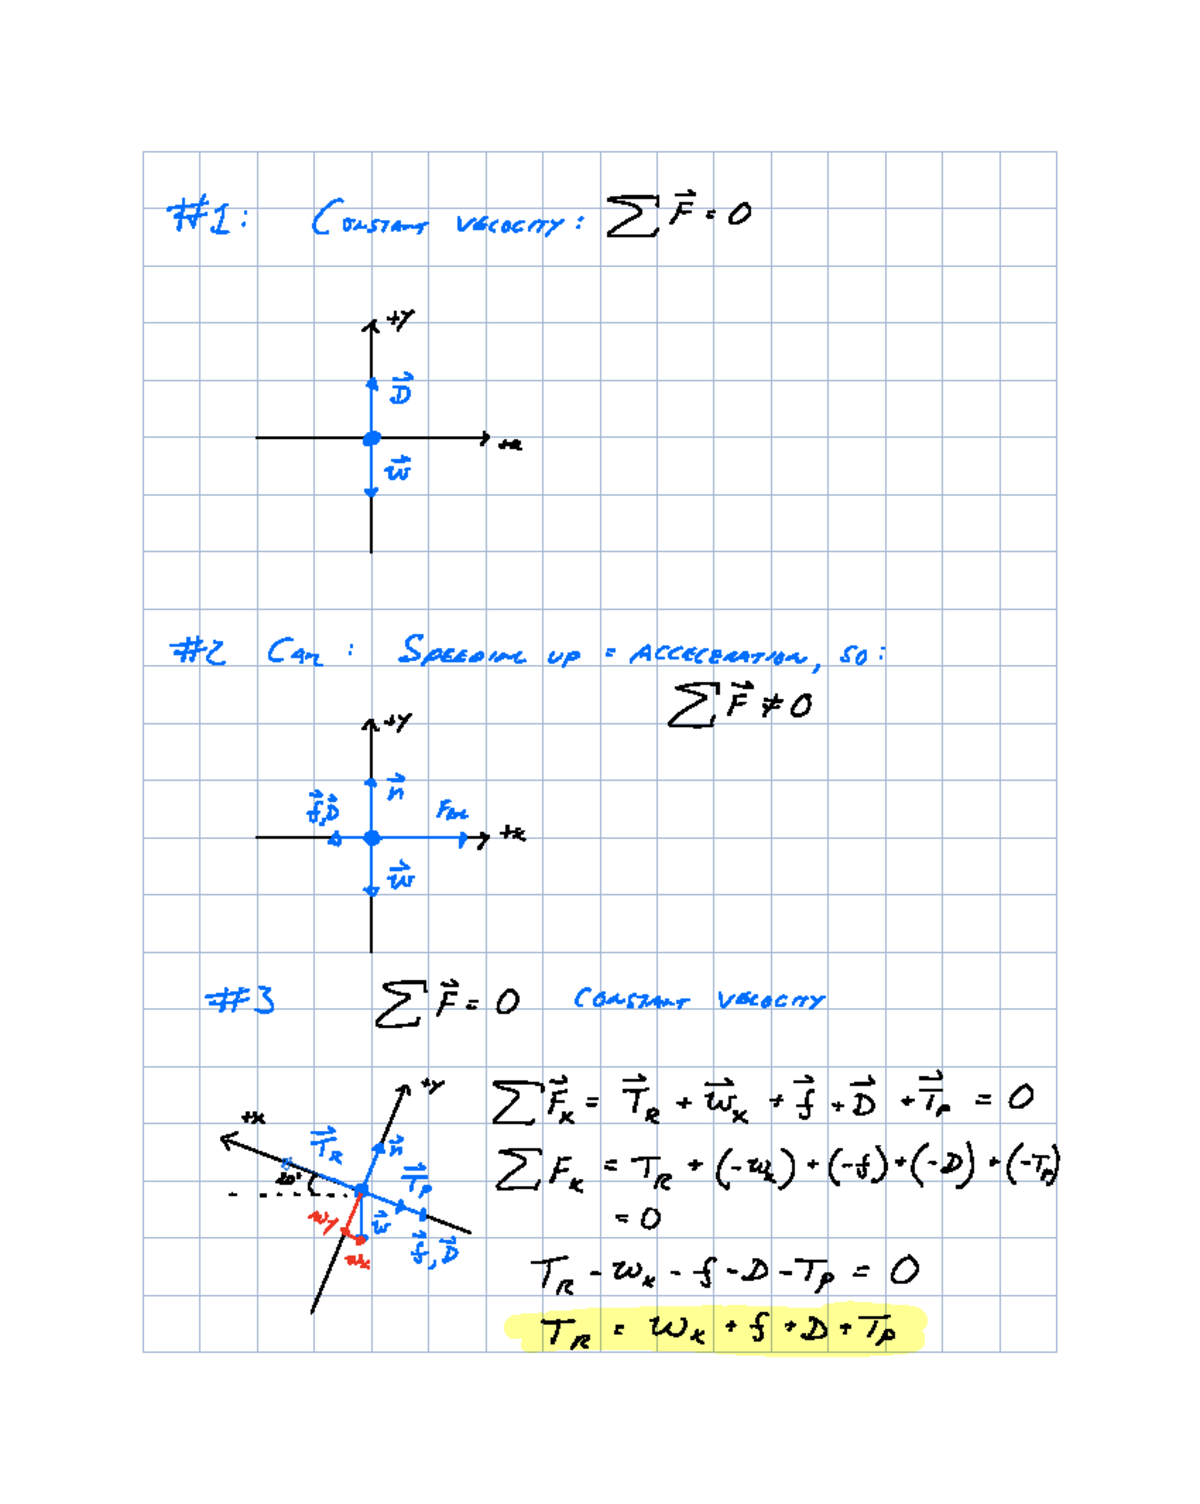 #1: CONSTANT VELOCITY: ∑F⃗ = 0
+Y
D⃗
+x
w⃗
#2 CAR: SPEEDING UP = ACCELERATION, SO:
∑F⃗ ≠ 0
+Y
n⃗
f⃗,D⃗
+x
w⃗
#3 ∑F⃗ = 0 CONSTANT VELOCITY
+Y
+x
T⃗R n⃗
T⃗P
20°
wy w⃗
f⃗, D⃗
wx
∑F⃗x = T⃗R + w⃗x + f⃗ + D⃗ + T⃗P = 0
∑Fx = TR + (-wx) + (-f) + (-D) + (-TP)
= 0
TR - wx - f - D - TP = 0
TR = wx + f + D + TP